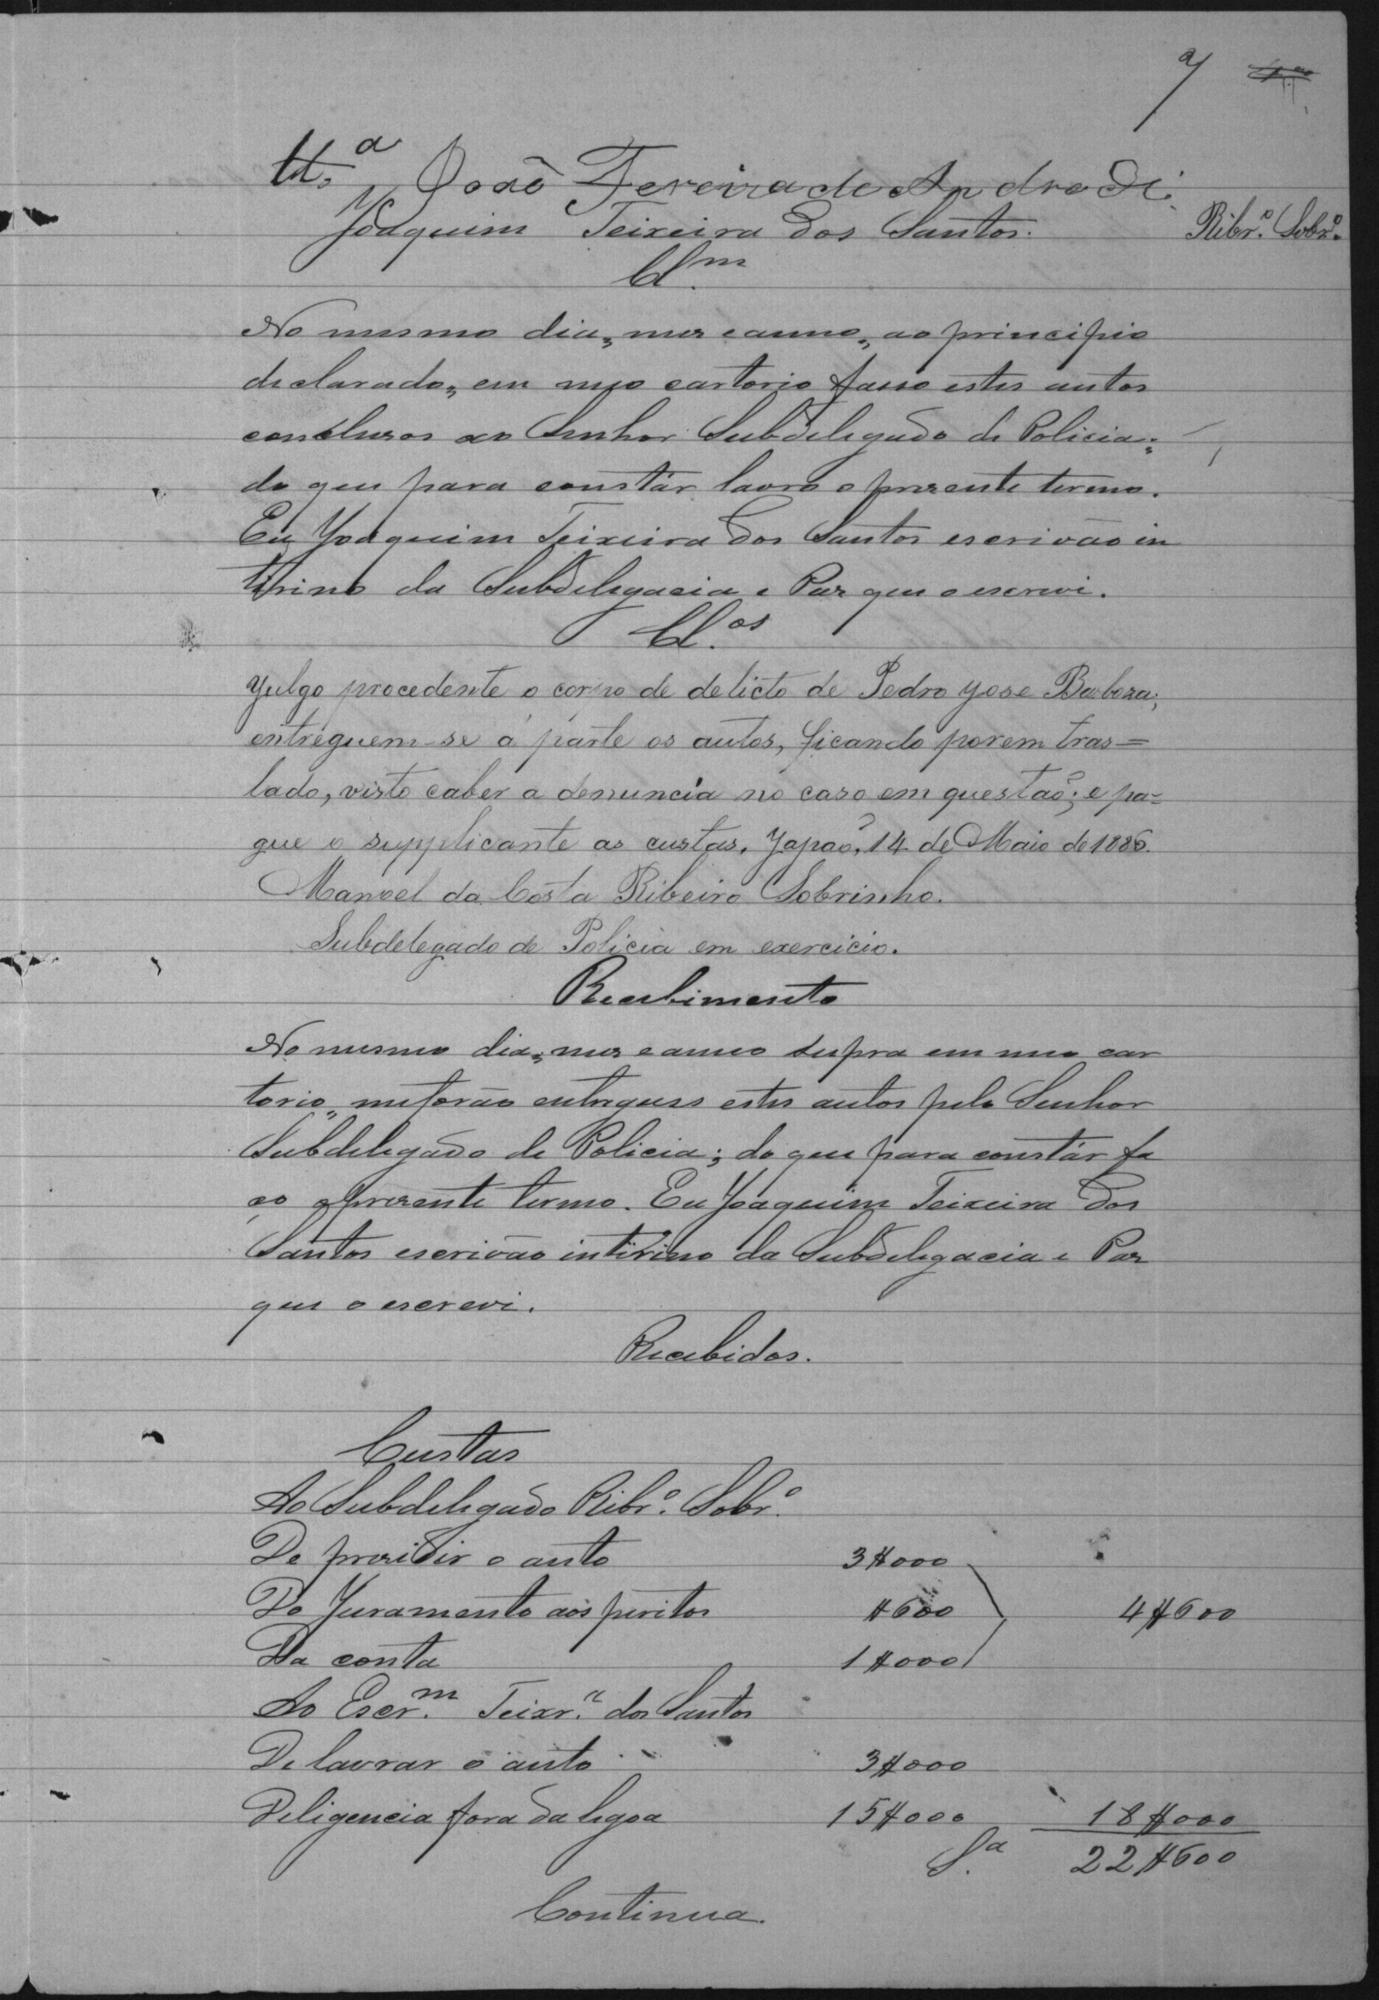 7
Tt.ª Joaõ Fereira de Andrade.
Joaquim Teixeira dos Santos. Ribr.º Sobr.º
Cl.m
No mesmo dia, mez e anno, ao principio
declarado, em meo cartorio fasso estes autos
concluzos ao Senhor Subdelegado de Policia;
do que para constár lavro o prezente termo.
Eu Joaquim Teixeira dos Santos escrivão in
tirino da Subdelegacia e Paz que o escrevi.
Cl.os
Julgo procedente o corpo de delicto de Pedro Jose Barboza;
entreguem-se á parte os autos, ficando porem tras=
lado, visto caber a denuncia no caso em questaõ; e pa=
gue o supplicante as custas. Japaõ, 14 de Maio de 1886.
Manoel da Costa Ribeiro Sobrinho.
Subdelegado de Policia em exercicio.
Recebimento
No mesmo dia, mez e anno supra em meo car
torio, me forão entregues estes autos pelo Senhor
Subdelegado de Policia; do que para constár fa
ço o prezente termo. Eu Joaquim Teixeira dos
Santos escrivão intirino da Subdelegacia e Paz
que o escrevi.
Recebidos.
Custas
Ao Subdelegado Ribr.º Sobr.º
De prezidir o auto 3$000
Do Juramento aos peritos $600 4$600
Da conta 1$000
Ao Escr.m Teixr.ª dos Santos
De lavrar o auto 3$000
Deligencia fora da legoa 15$000 18$000
S.ª 22$600
Continua.